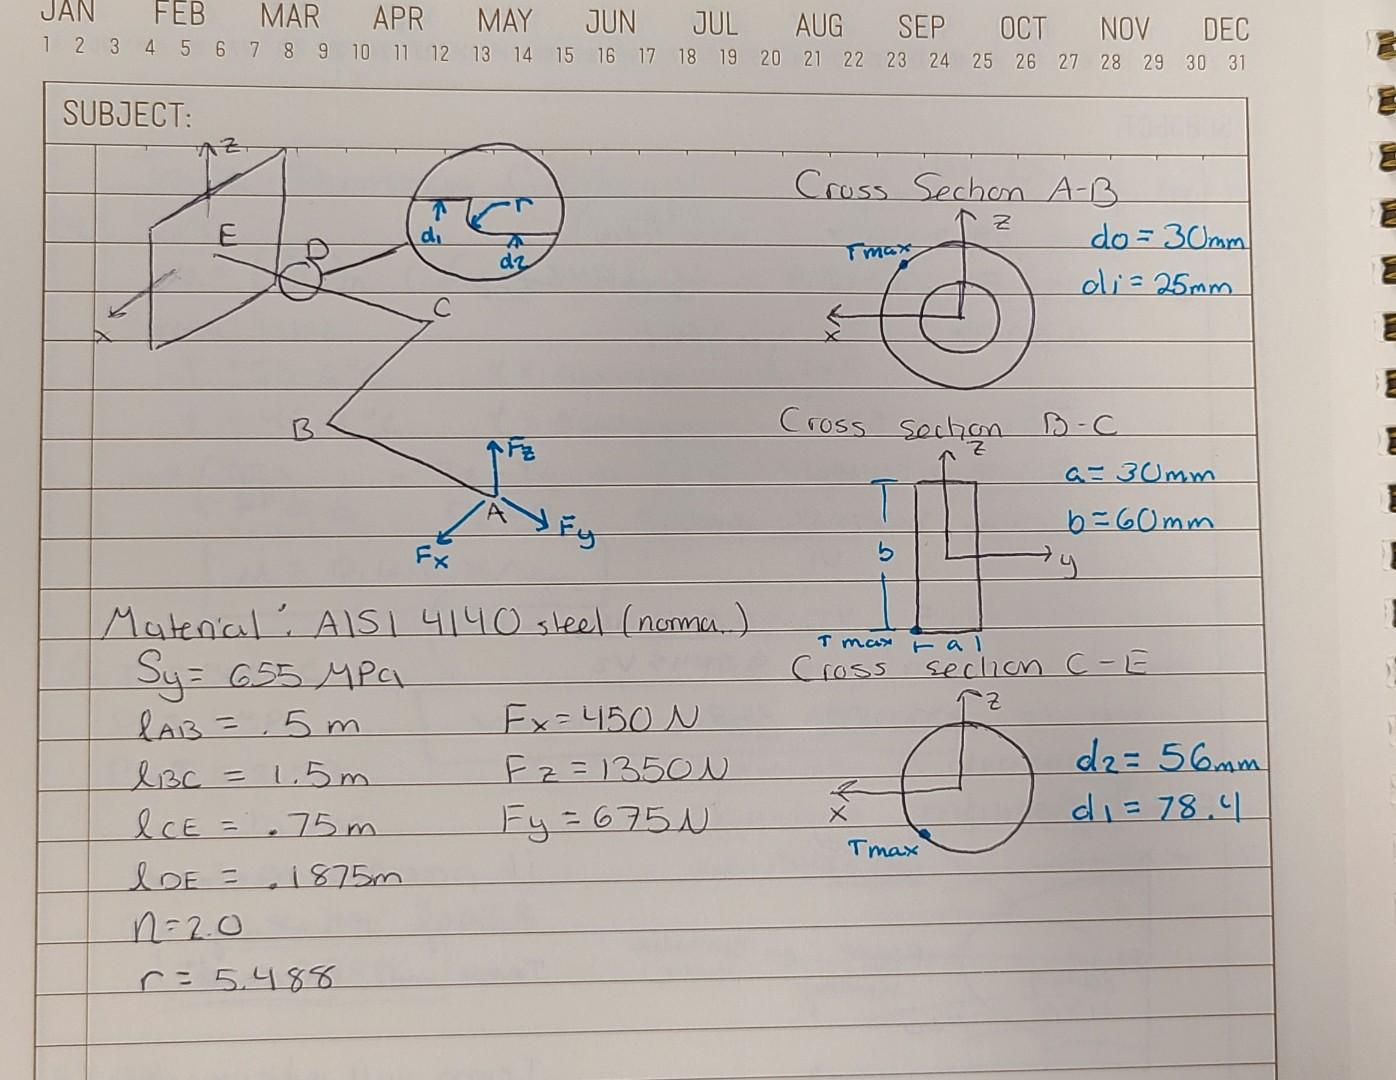 JAN FEB MAR APR MAY JUN JUL AUG SEP OCT NOV DEC
1 2 3 4 5 6 7 8 9 10 11 12 13 14 15 16 17 18 19 20 21 22 23 24 25 26 27 28 29 30 31
SUBJECT:
z
E
D
x
C
B
A
Fz
Fy
Fx
r
d1
d2
Cross Section A-B
z
Tmax
x
do = 30mm
di = 25mm
Cross section B-C
z
a = 30mm
b = 60mm
b
y
Tmax
a
Cross section C-E
z
x
Tmax
d2 = 56mm
d1 = 78.4
Material: AISI 4140 steel (norma..)
Sy = 655 MPa
lAB = .5 m
Fx = 450 N
lBC = 1.5m
Fz = 1350N
lCE = .75m
Fy = 675N
lDE = .1875m
n=2.0
r = 5.488